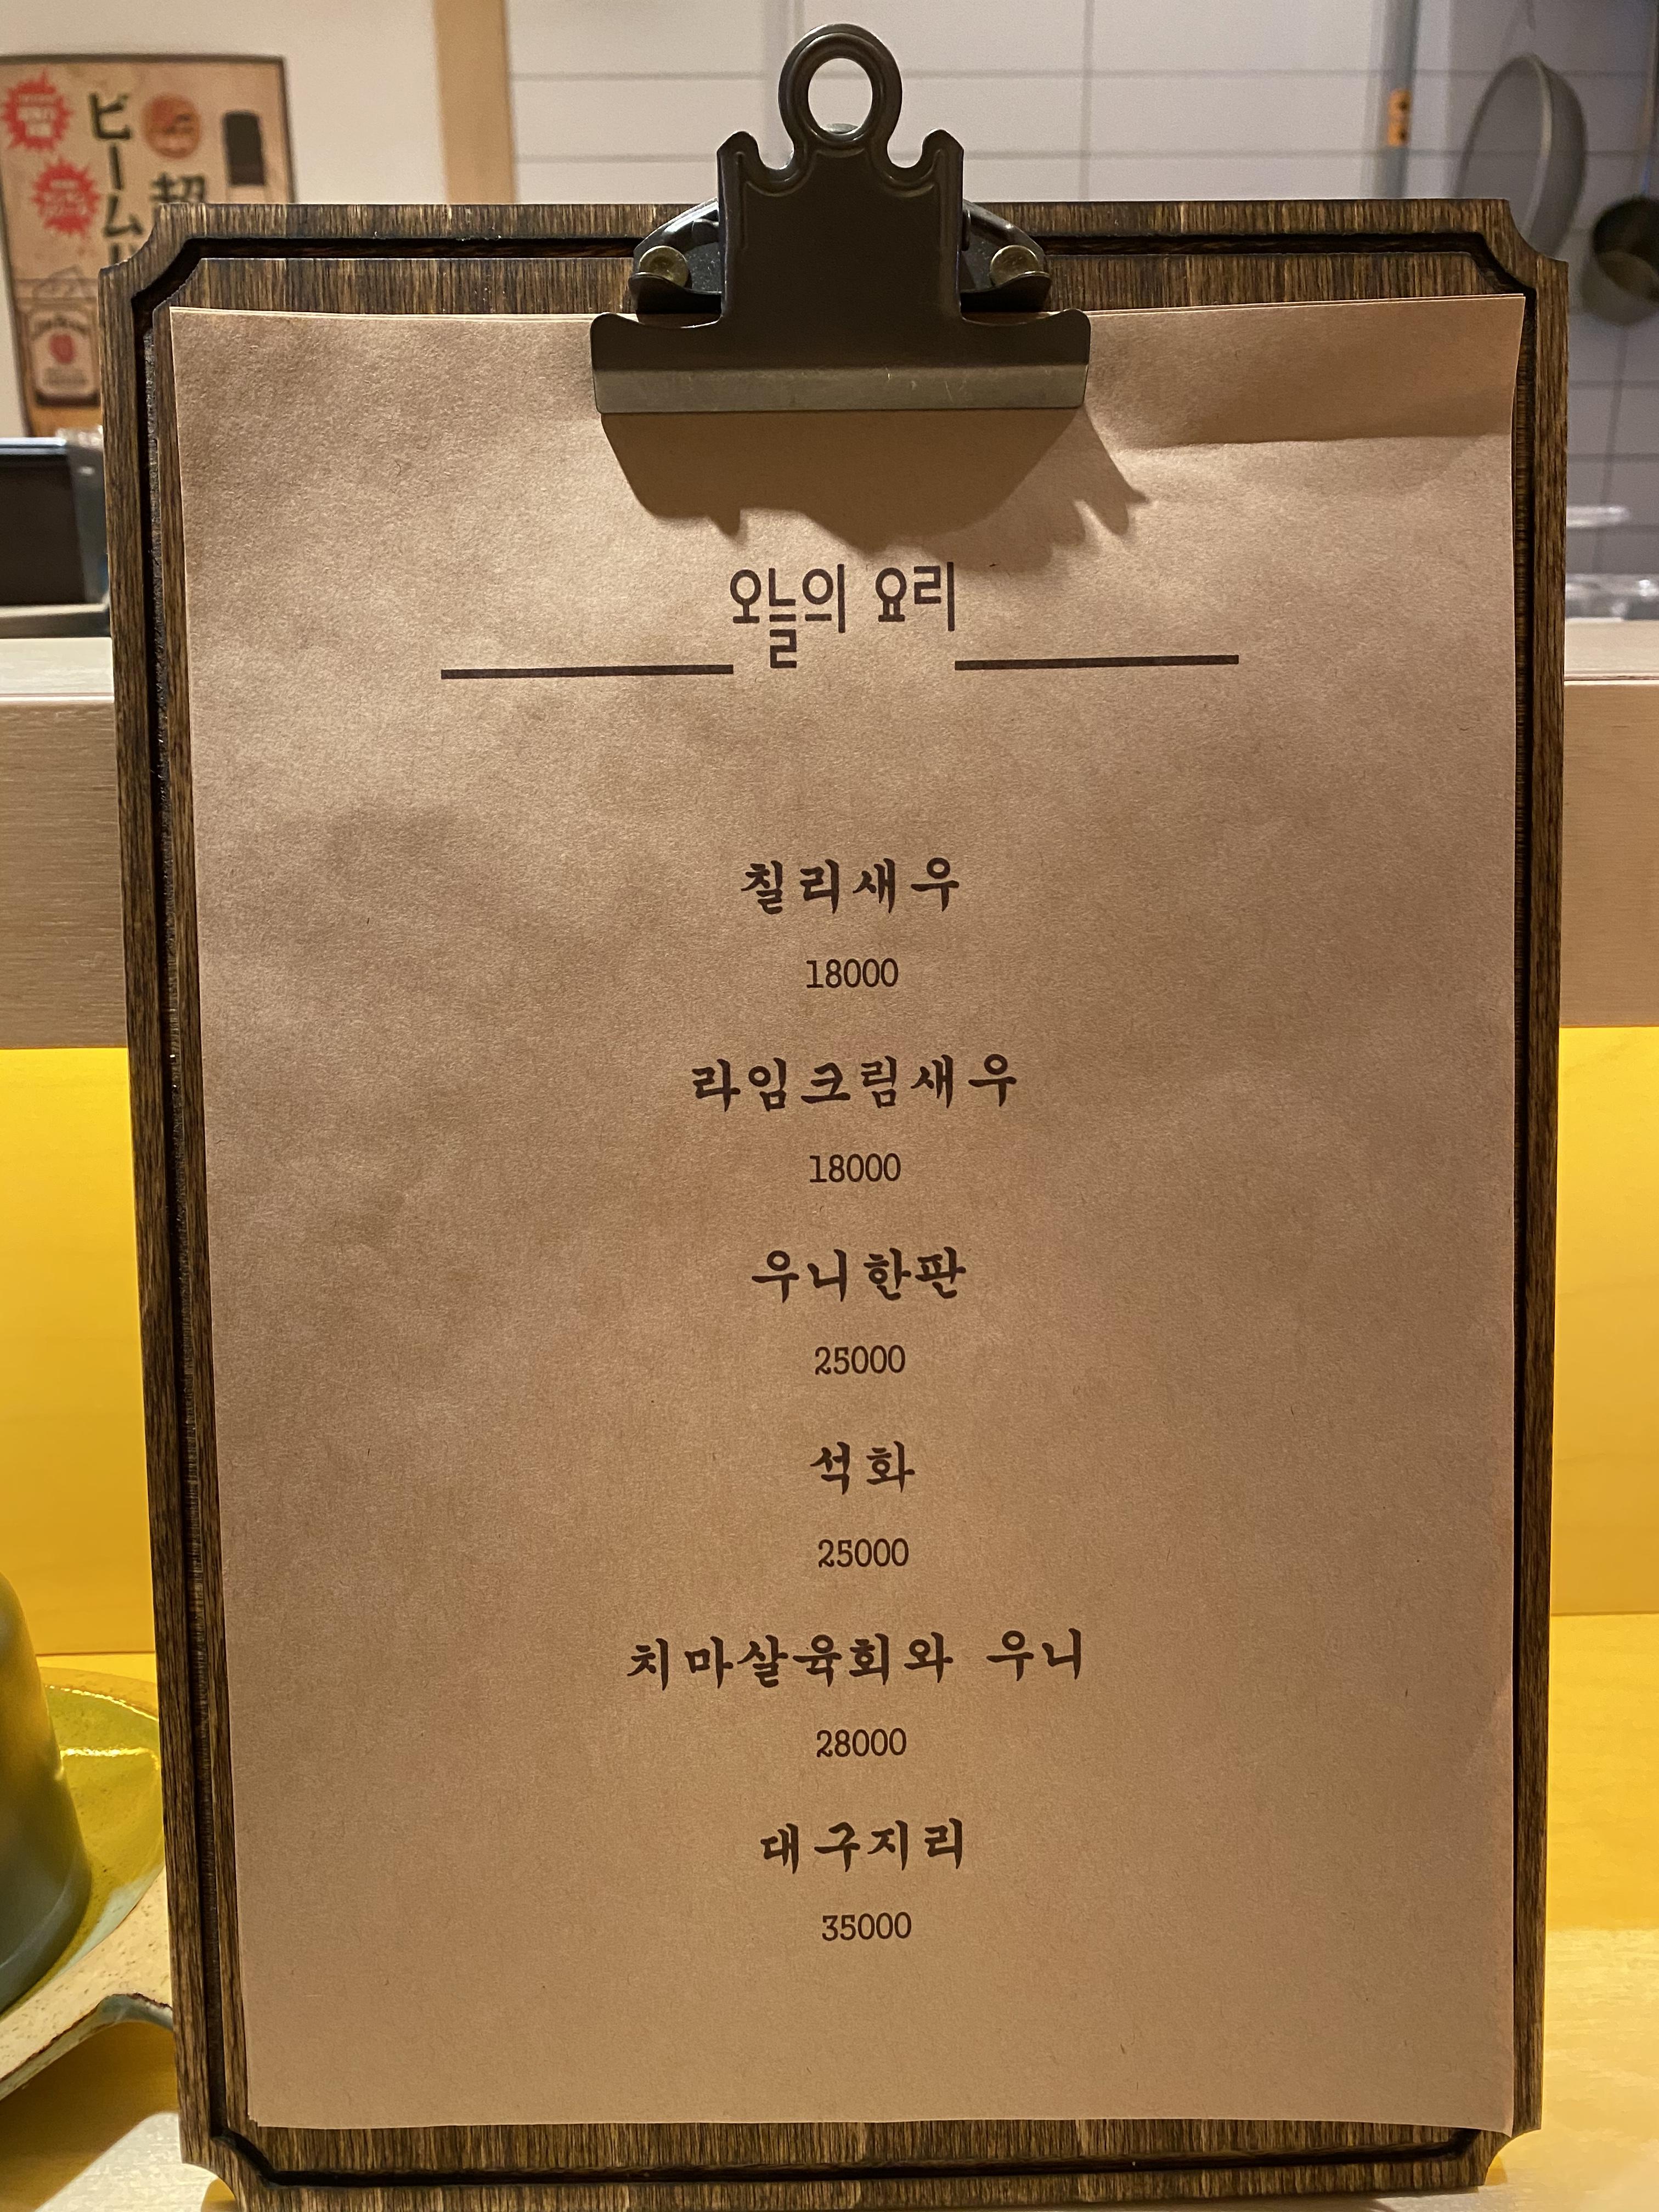 ビーム
超
오늘의 요리
칠리새우
18000
라임크림새우
18000
우니한판
25000
석화
25000
치마살육회와 우니
28000
대구지리
35000